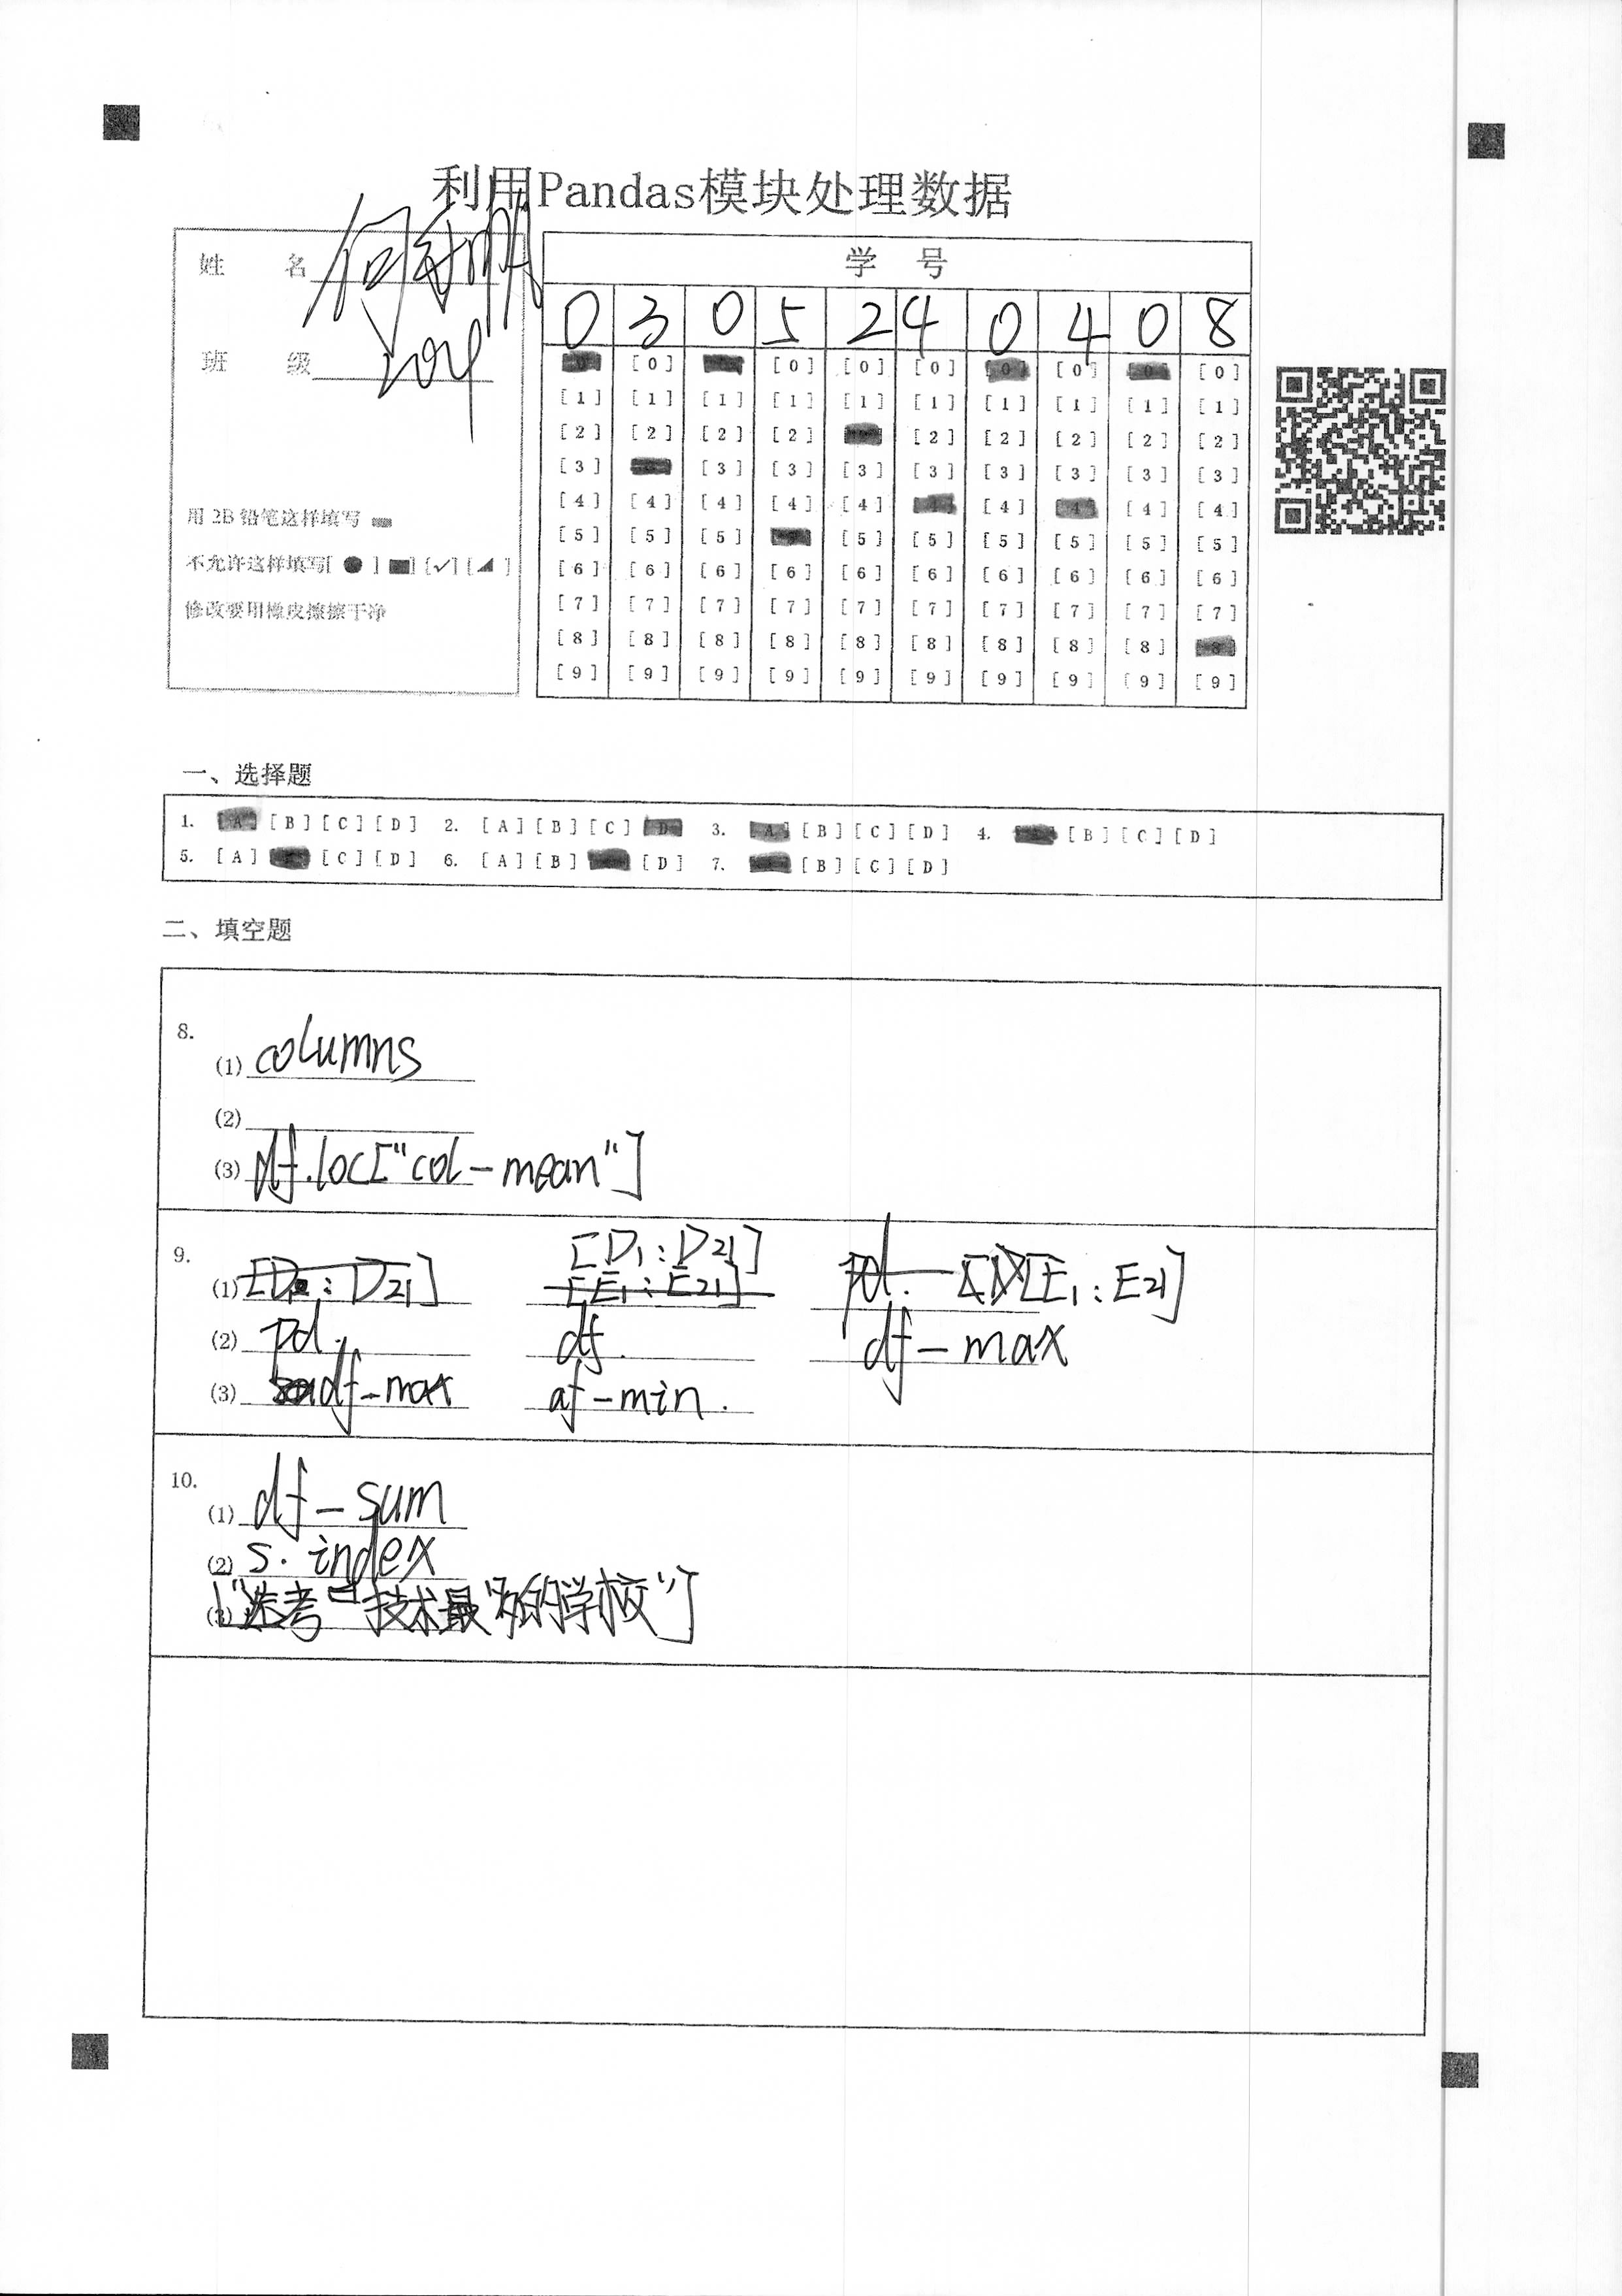 利用Pandas模块处理数据
姓 名 何
班 级 204
用 2B 铅笔这样填写
不允许这样填写[ ● ] [■] [✓] [◢ ]
修改要用橡皮擦擦干净
学 号
0 3 0 5 2 4 0 4 0 8
[0] [0] [0] [0] [0] [0] [0] [0] [0] [0]
[1] [1] [1] [1] [1] [1] [1] [1] [1] [1]
[2] [2] [2] [2] [2] [2] [2] [2] [2]
[3] [3] [3] [3] [3] [3] [3] [3] [3]
[4] [4] [4] [4] [4] [4] [4] [4] [4]
[5] [5] [5] [5] [5] [5] [5] [5] [5]
[6] [6] [6] [6] [6] [6] [6] [6] [6] [6]
[7] [7] [7] [7] [7] [7] [7] [7] [7] [7]
[8] [8] [8] [8] [8] [8] [8] [8] [8] [8]
[9] [9] [9] [9] [9] [9] [9] [9] [9] [9]
一、选择题
1. [A] [B] [C] [D] 2. [A] [B] [C] [D] 3. [A] [B] [C] [D] 4. [B] [C] [D]
5. [A] [C] [D] 6. [A] [B] [D] 7. [B] [C] [D]
二、填空题
8.
(1) columns
(2)
(3) df.loc["col-mean"]
9.
[D1:D21]
(1) [D:D21] [E1:E21] pd. [E1:E21]
(2) pd. df. df-max
(3) df-max df-min.
10.
(1) df-sum
(2) s.index
(3) ["选考 技术最 的学校"]